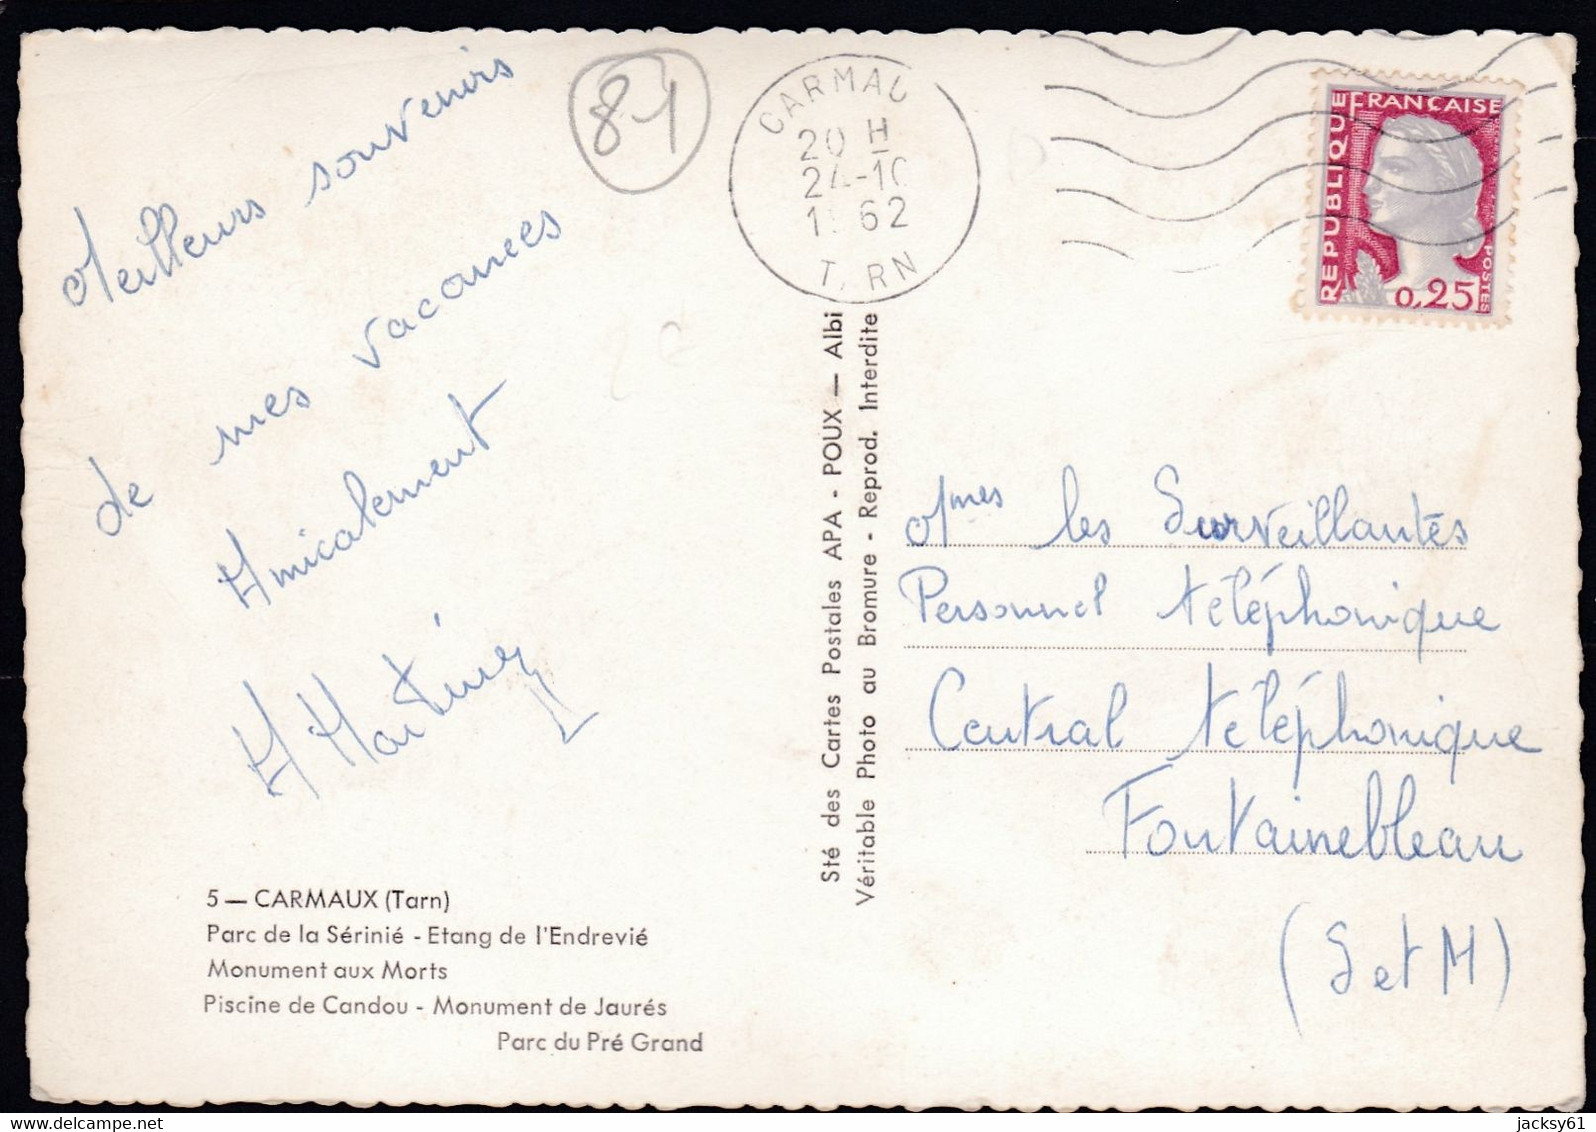 Meilleurs souvenirs
de mes vacances
Amicalement
81
CARMAU
20 H
24-10
1962
TARN
RÉPUBLIQUE FRANÇAISE
POSTES
0,25
Sté des Cartes Postales APA - POUX — Albi
Véritable Photo au Bromure - Reprod. Interdite
Mmes les Surveillantes
Personnel téléphonique
Central téléphonique
Fontainebleau
(S et M)
5 — CARMAUX (Tarn)
Parc de la Sérinié - Etang de l'Endrevié
Monument aux Morts
Piscine de Candou - Monument de Jaurés
Parc du Pré Grand
jacksy61